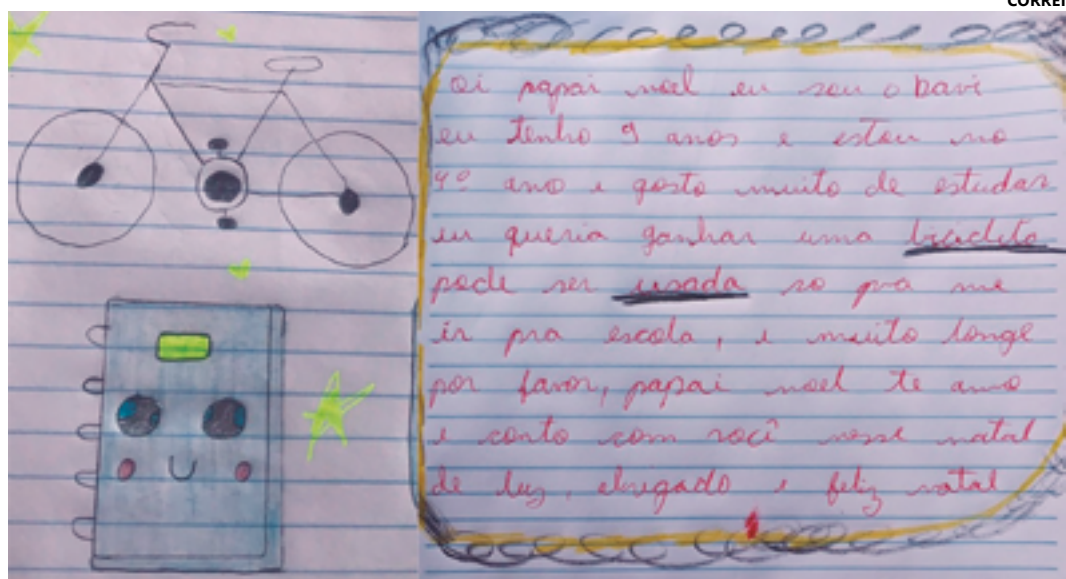 CORREI
oi papai noel eu sou o Davi
eu tenho 9 anos e estou no
4º ano e gosto muito de estudar
eu queria ganhar uma bicicleta
pode ser usada so pra me
ir pra escola, e muito longe
por favor, papai noel te amo
e conto com você nesse natal
de luz, obrigado e feliz natal